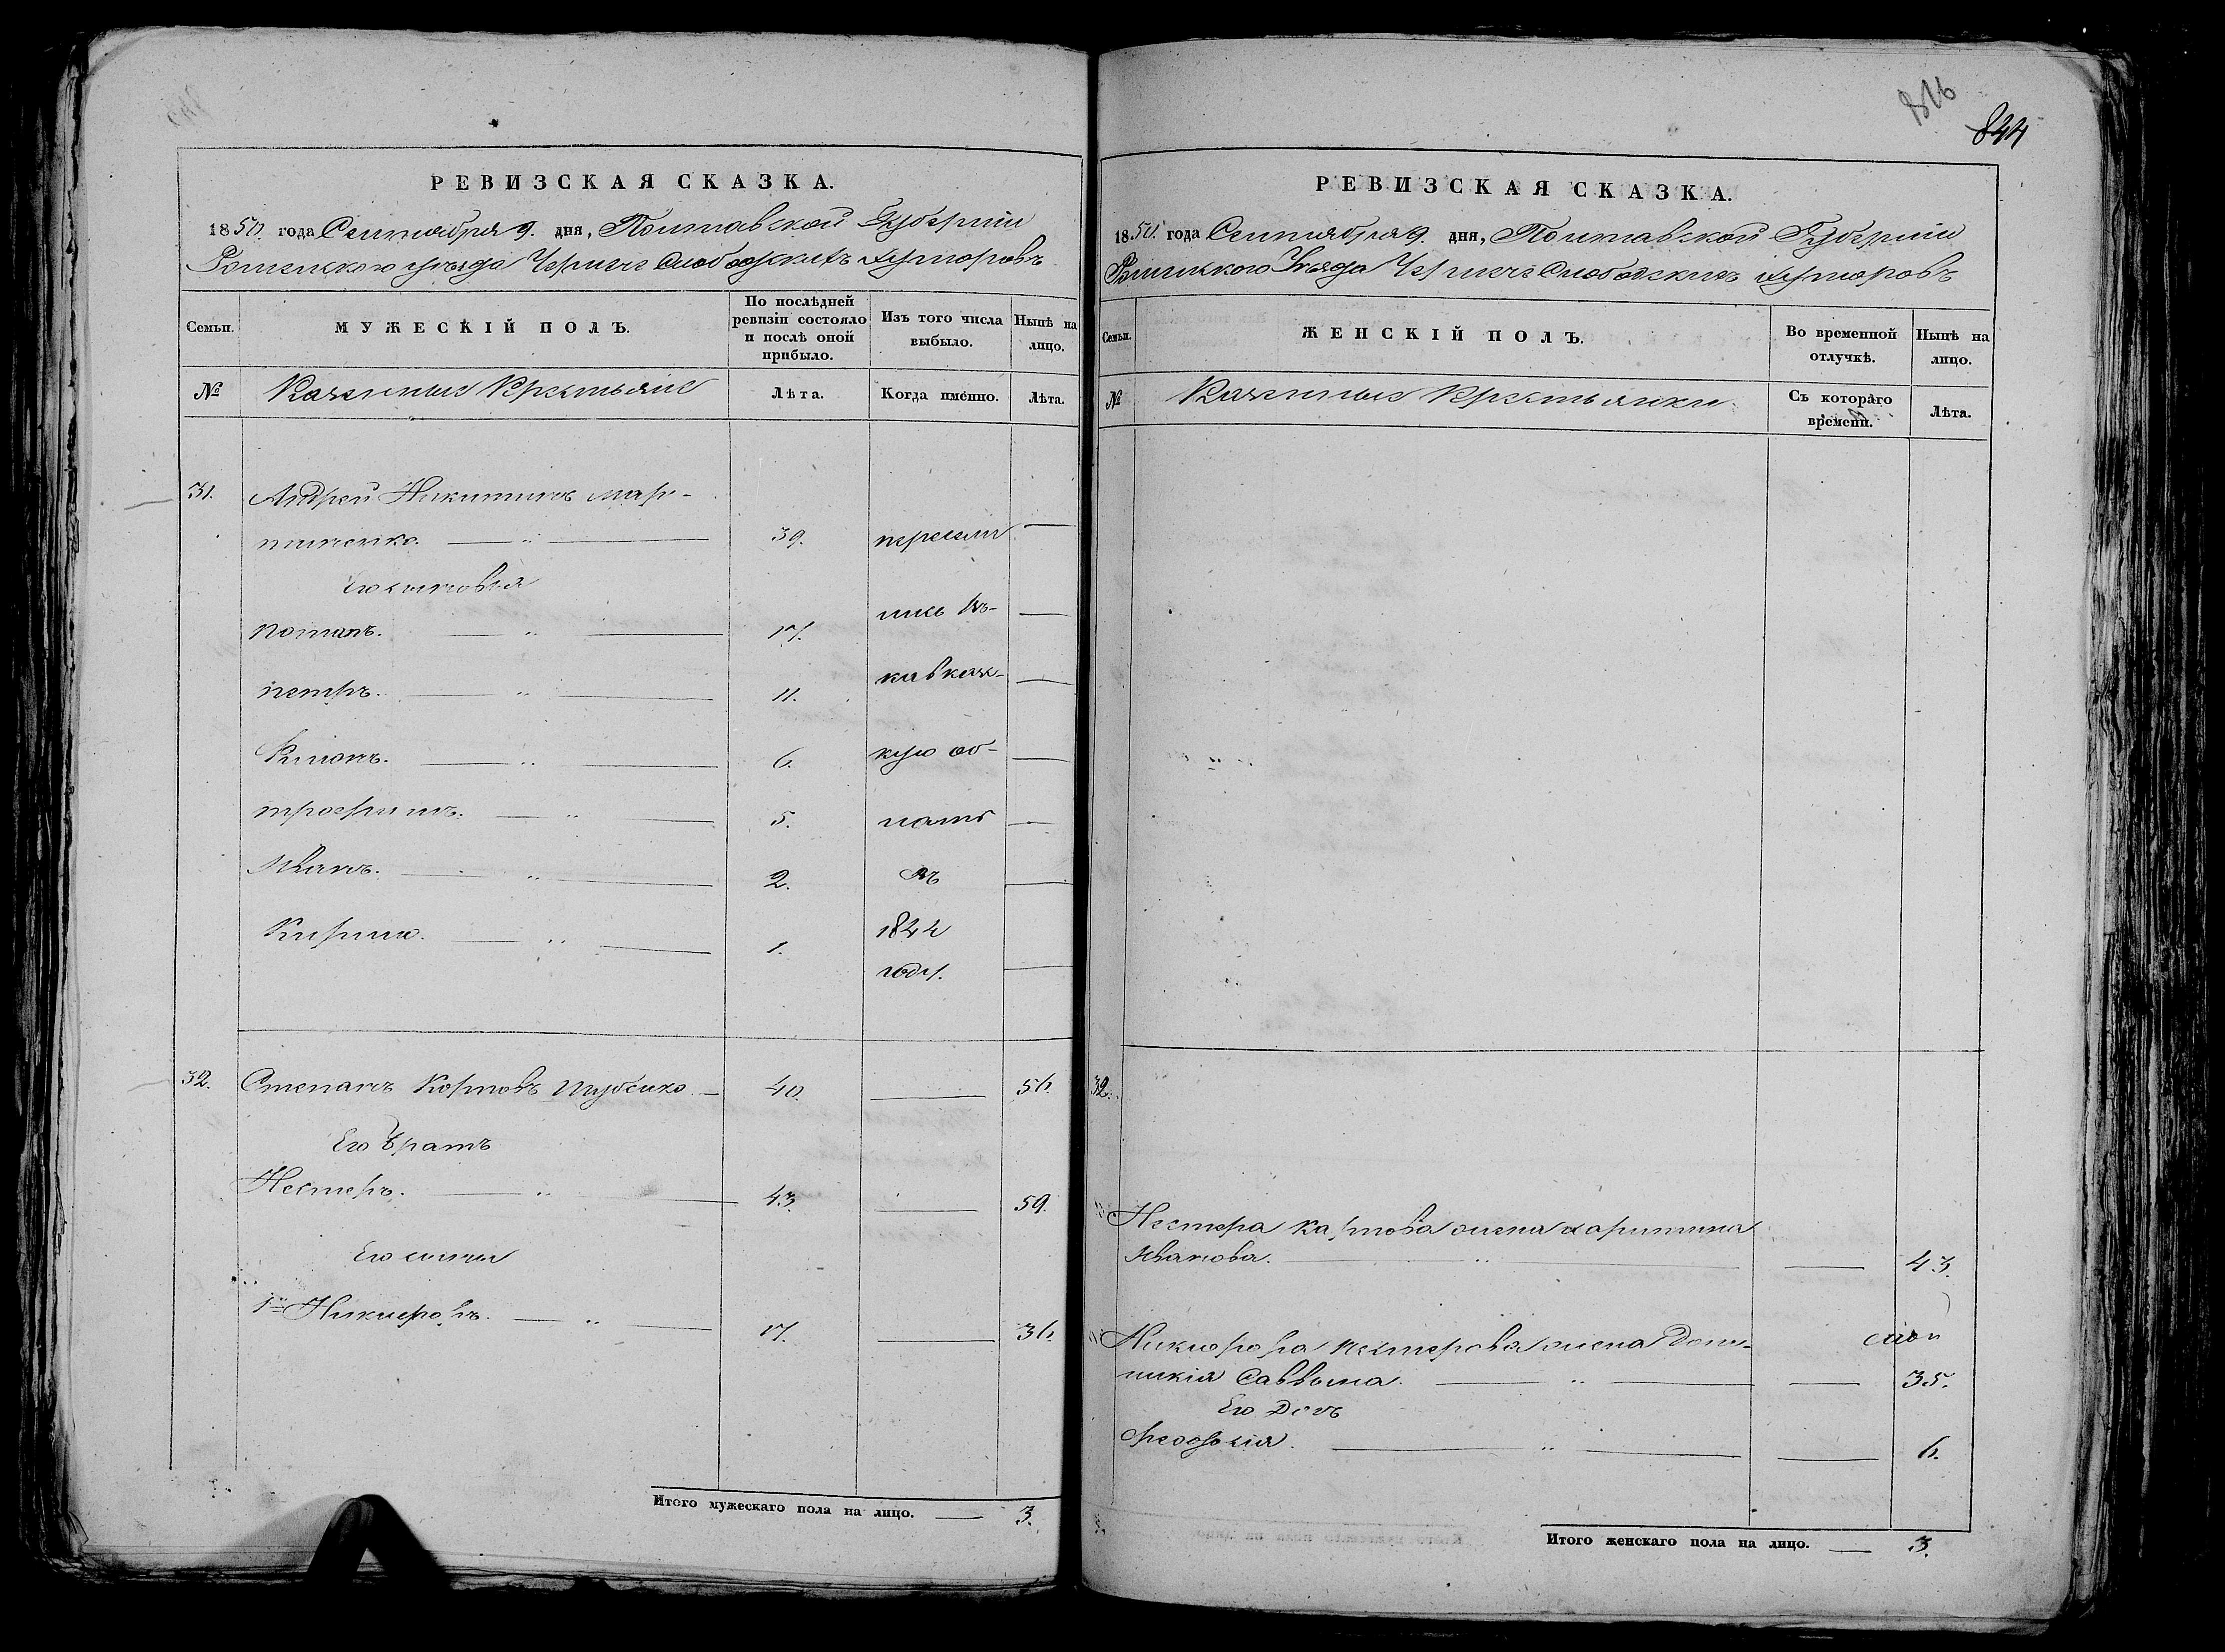 РЕВИЗСКАЯ СКАЗКА.
1850. года Сентября 9. дня, Полтавской Губернии
Роменского уѣзда Чернече Слободскихъ хуторовъ
Семьи.
МУЖЕСКІЙ ПОЛЪ.
По послѣдней ревизіи состояло и послѣ оной прибыло.
Изъ того числа выбыло.
Нынѣ на лицо.
№
Казенные Крестьяне
Лѣта.
Когда именно.
Лѣта.
31.
Андрей Никитинъ Мар-
тиненко.
39.
пересели
Его сыновья
Потапъ.
17.
лись въ-
Петръ.
11.
кавказ-
6.
кую об-
Трофимъ.
5.
ласть
Иванъ.
2.
въ
Кирило.
1.
1844
году.
32.
Степанъ Карповъ Шубенко
40.
56.
Его братъ
Нестеръ.
43.
59.
Его сынъ
1й Никифоръ.
17.
36.
Итого мужескаго пола на лицо.
3.
816
844
РЕВИЗСКАЯ СКАЗКА.
1850. года Сентября 9. дня, Полтавской Губернии
Роменского Уѣзда Чернече Слободскихъ хуторовъ
Семьи.
ЖЕНСКІЙ ПОЛЪ.
Во временной отлучкѣ.
Нынѣ на лицо.
№
Казенные Крестьянки
Съ котораго времени.
Лѣта.
32.
Нестера Карпова жена Харитина
Иванова.
43.
Никифора Нестерова жена Доми-
никія Саввина.
35.
Его Дочь
Феодосія.
6.
Итого женскаго пола на лицо.
3.